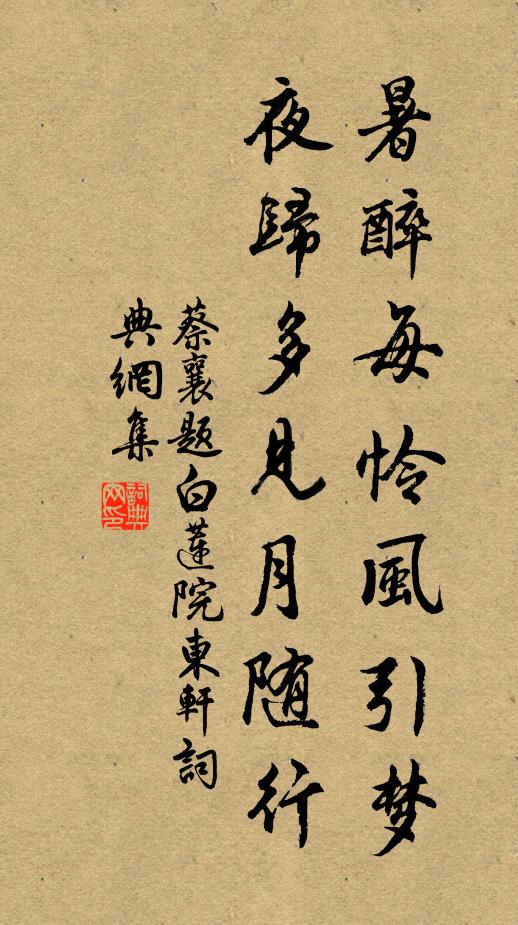 暑醉每怜風引梦
夜歸多見月随行
蔡襄题白蓮院東軒詞
典網集
詞典
网印